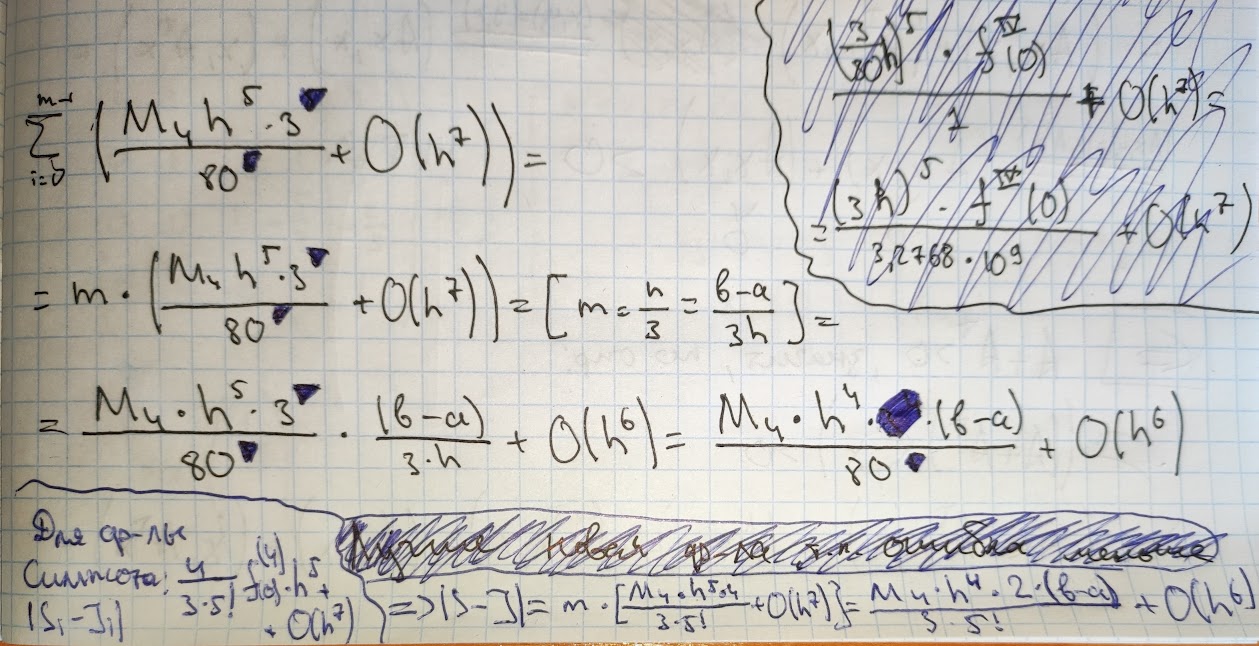 \sum_{i=0}^{m-1} \left( \frac{M_4 h^5 \cdot 3}{80} + O(h^7) \right) =
= m \cdot \left( \frac{M_4 h^5 \cdot 3}{80} + O(h^7) \right) = \left[ m = \frac{n}{3} = \frac{b-a}{3h} \right] =
= \frac{M_4 \cdot h^5 \cdot 3}{80} \cdot \frac{(b-a)}{3 \cdot h} + O(h^6) = \frac{M_4 \cdot h^4 \cdot (b-a)}{80} + O(h^6)
\frac{\left(\frac{3}{80}h\right)^5 \cdot f^{IV}(0)}{1} + O(h^7) =
= \frac{(3h)^5 \cdot f^{IV}(0)}{3,2768 \cdot 10^9} + O(h^7)
новая ф-ла т.к. ошибка меньше
Для ф-лы
Симпсона: \frac{4}{3 \cdot 5!} f^{(4)}(0) \cdot h^5 +
|S_i - J_i| + O(h^7)
=> |S - J| = m \cdot \left[ \frac{M_4 \cdot h^5 \cdot 4}{3 \cdot 5!} + O(h^7) \right] = \frac{M_4 \cdot h^4 \cdot 2 \cdot (b-a)}{3 \cdot 5!} + O(h^6)